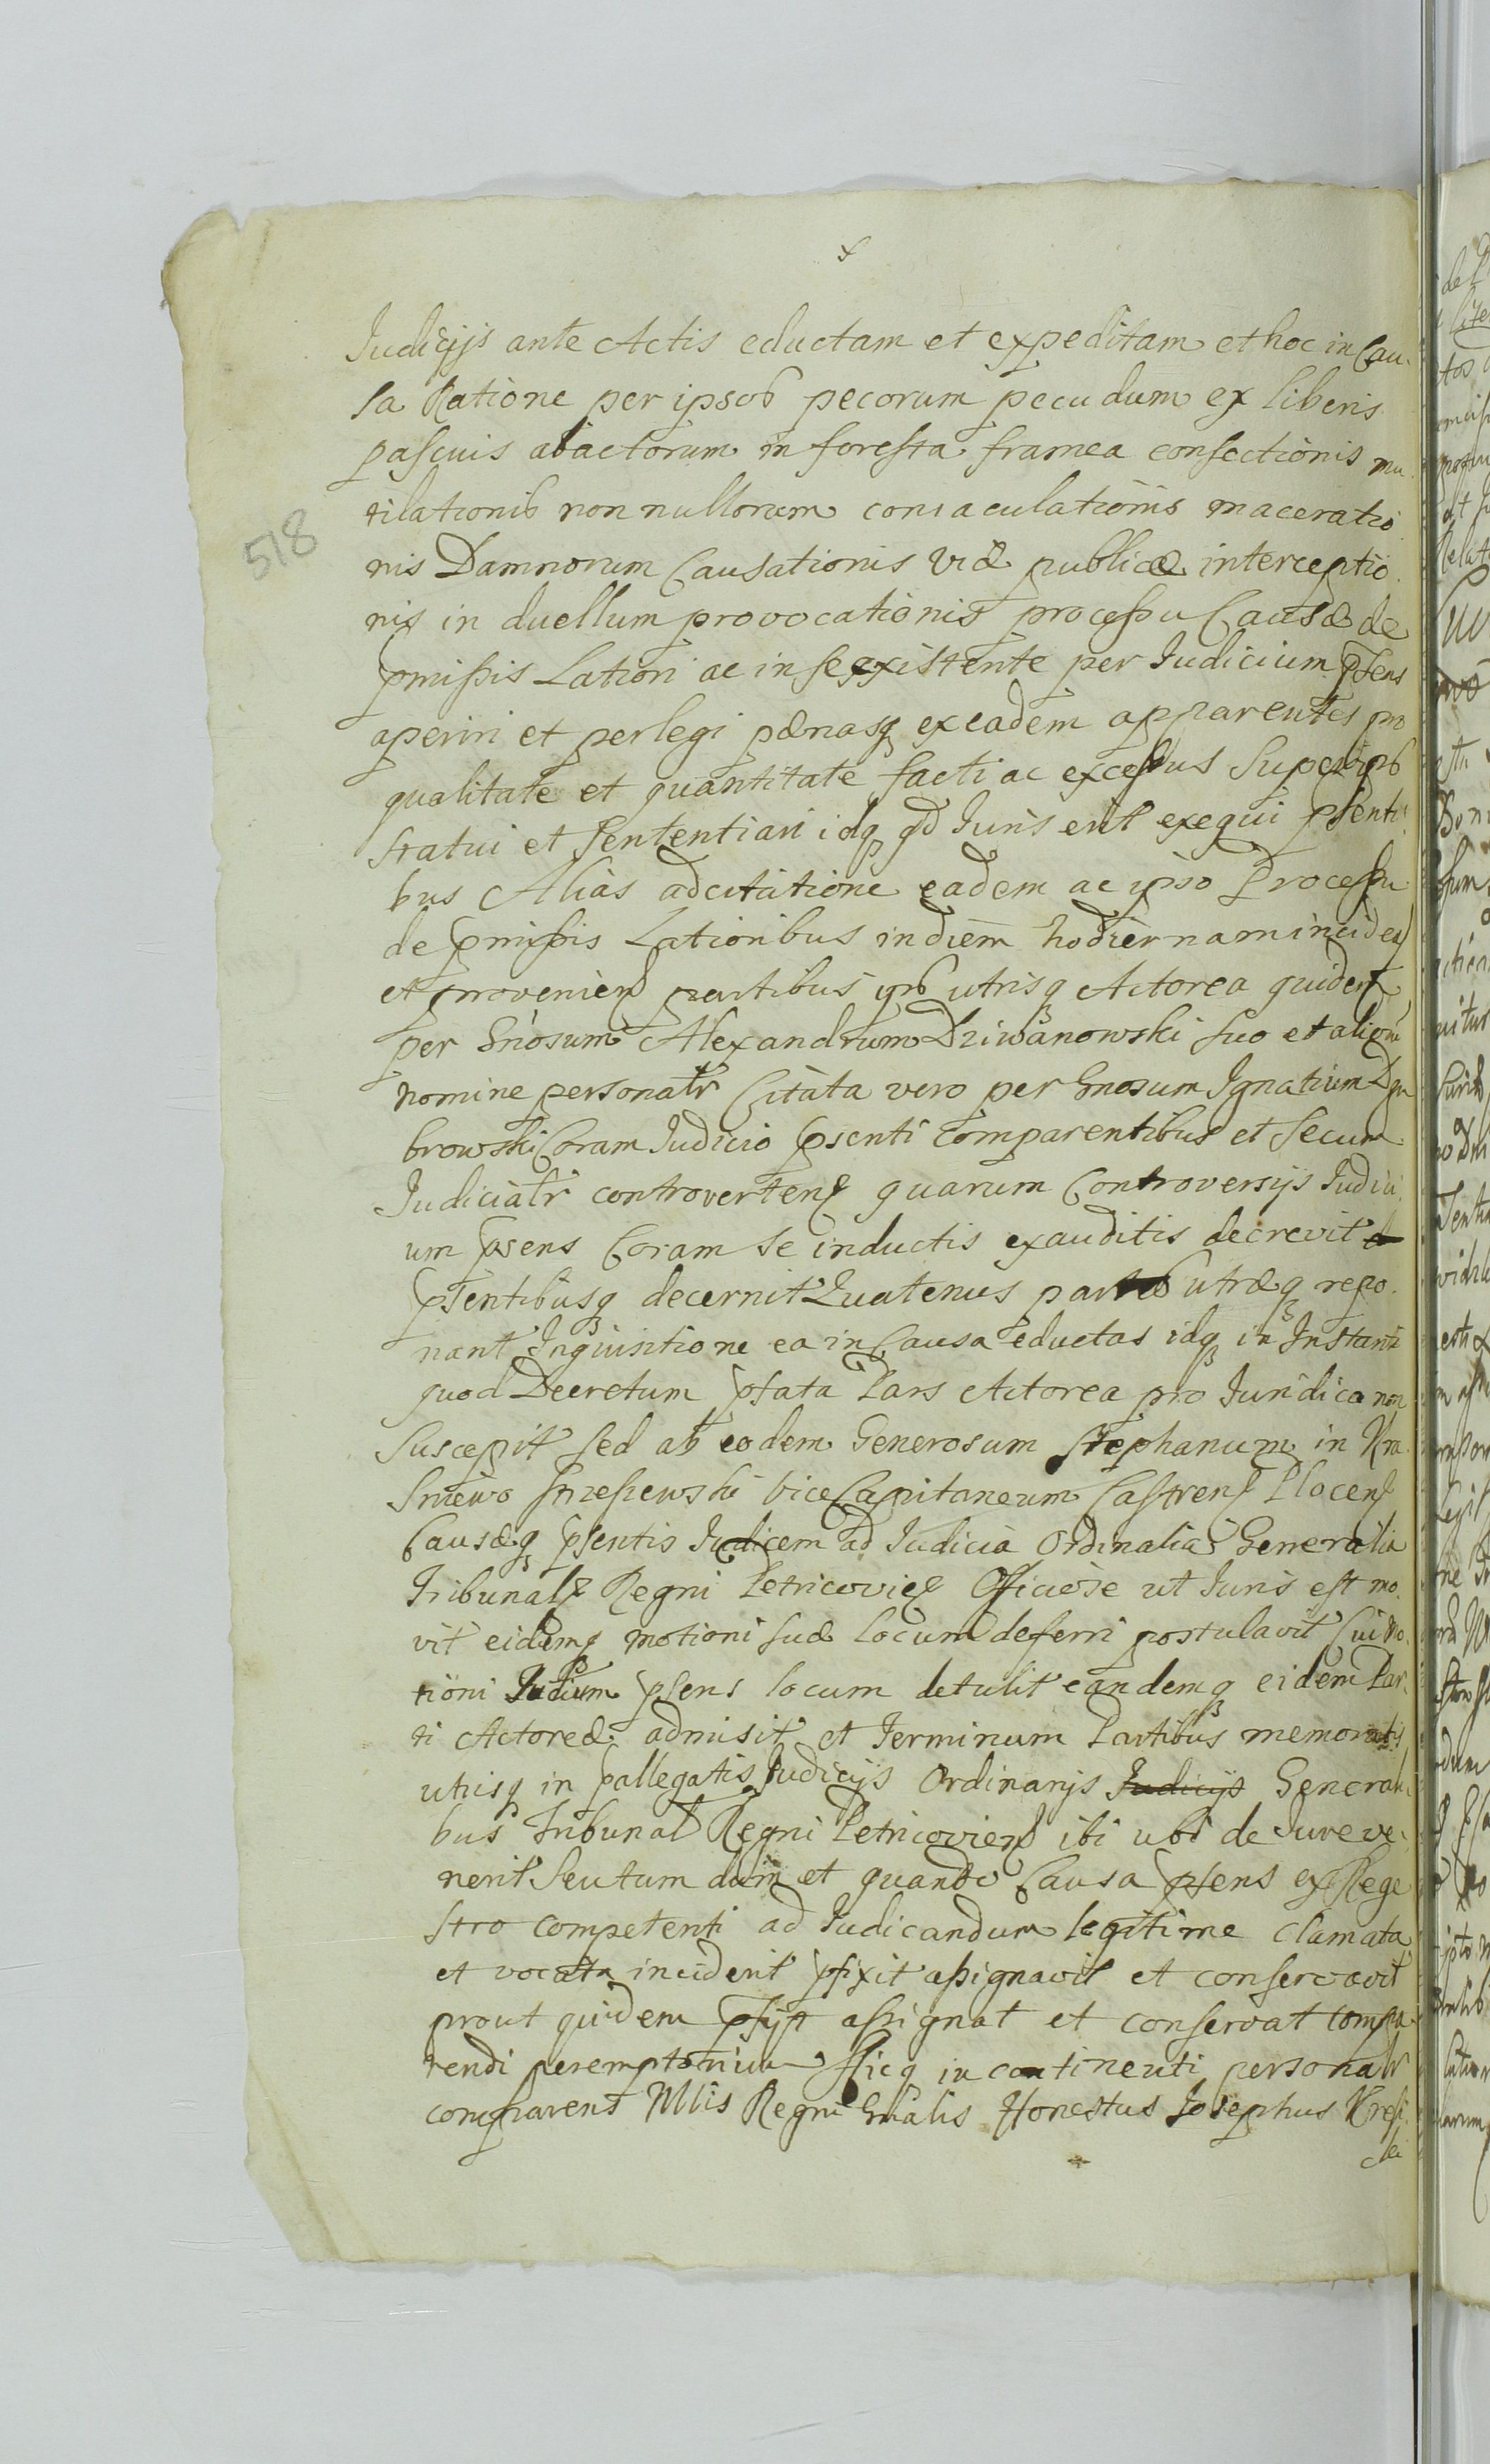 Judicijs ante Actis eductam et expeditam et hoc in Cau-
sa Ratione per ipsos pecorum pecudum ex liberis
pascuis abactorum in foresta framea consectionis mu-
tilationis non nullorum coniaculationis maceratio-
518
nis Damnorum Causationis viæ publicæ interceptio-
nis in duellum provocationis processu Causæ de
pmissis Lationi ac in se existente per Judicium psens
aperiri et perlegi pœnasq ex eadem apparentes pro
qualitate et quantitate facti ac excessus super ips
statui et sententiari idq qd Juris erit exequi psenti-
bus Alias ad citatione eadem ac ipso Processu
de pmissis Lationibus in diem hodiernam inciden
et provenien partibus ips utrisq Actorea quidem
per Gnosum Alexandrum Dziwanowski suo et aliorum
nomine personalr Citata vero per Gnosum Ignatium
browski Coram Judicio psenti comparentibus et secum
Judicialr controverten quarum Controversijs Judici-
um psens Coram se inductis exauditis decrevit et
psentibusq decernit Quatenus partes utræq repo-
nant Inquisitione ea in Causa eductas idq in Instanti
quod Decretum pfata Pars Actorea pro Juridica non
suscepit sed ab eodem Generosum Stephanum in Kra-
sniewo vice Capitaneum Castren Plocen
Causæq psentis Judicem ad Judicia Ordinalia Generalia
Tribunals Regni Petricovien Officiose ut Juris est mo-
vit eidemq motioni suæ locum deferri postulavit Cui mo-
tioni Judium psens locum detulit eandemq eidem Par-
ti Actoreæ admisit et Terminum Partibus memoratis
utrisq in pallegatis Judicijs Ordinarijs Judicijs Generali-
bus Tribunal Regni Petricovien ibi ubi de Jure ve-
nerit seu tum dum et quando Causa psens ex Rege-
stro competenti ad Judicandum legitime clamata
et vocata inciderit pfixit assignavit et conservavit
prout quidem pfigit assignat et conservat compa-
rendi peremptorium Hicq in continenti personalr
comparens Mlis Regni Gnalis Honestus Josephus